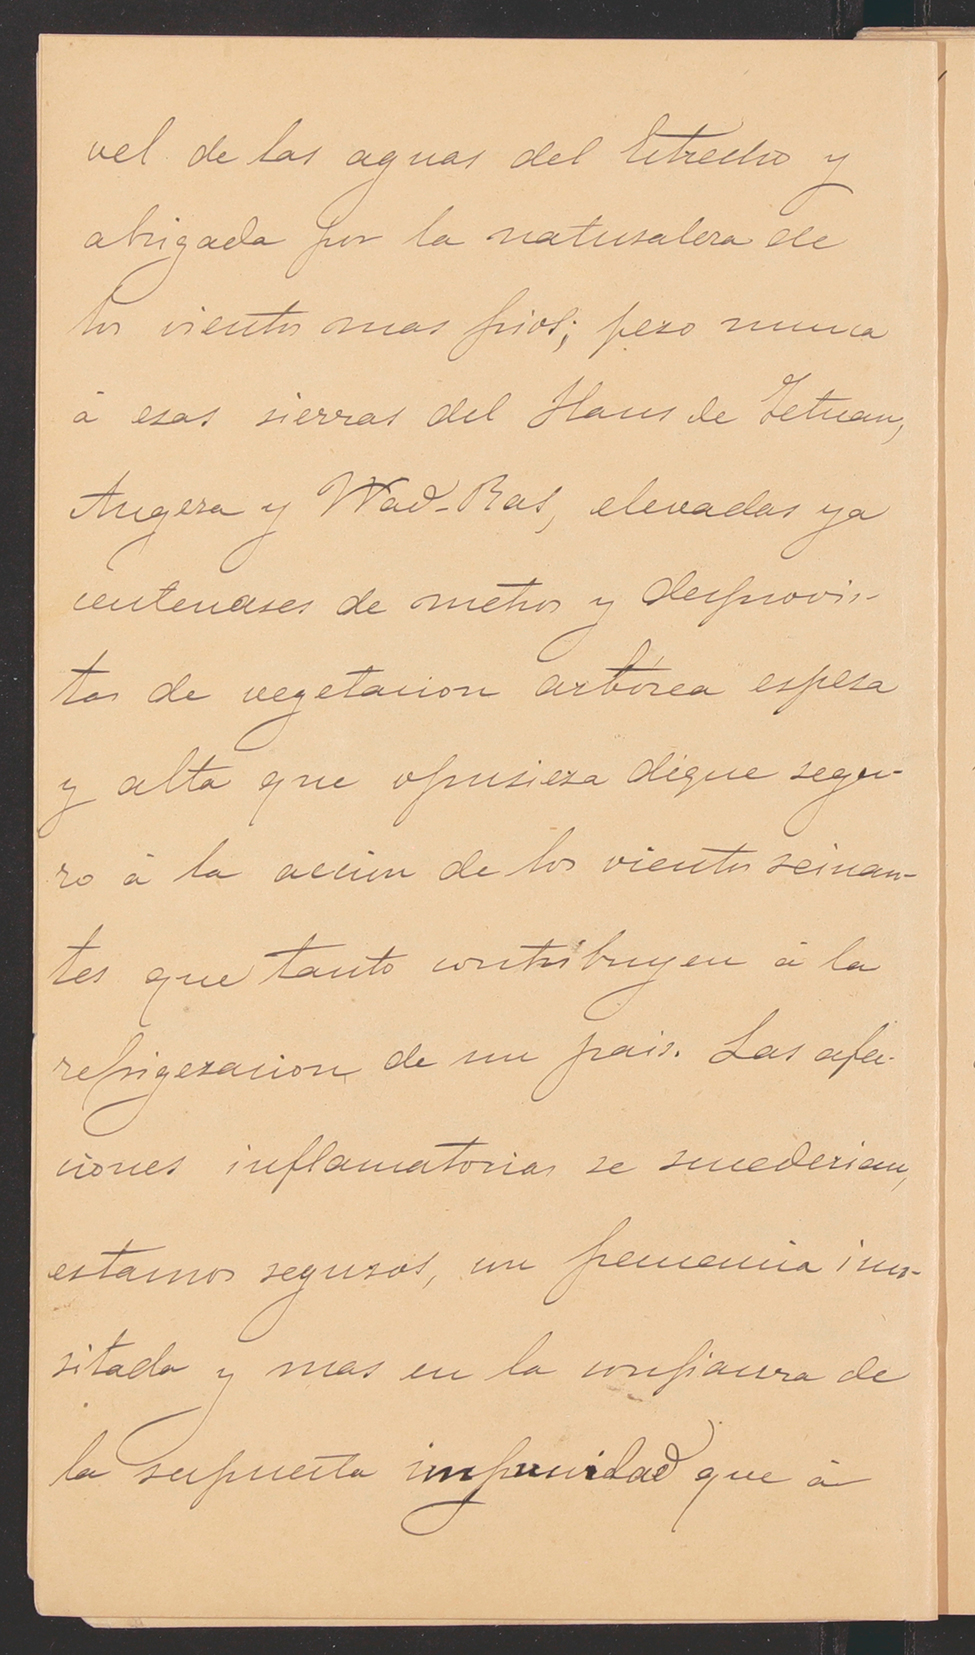 vel de las aguas del Estrecho y
abrigada por la naturaleza de
los vientos mas frios; pero nunca
á esas sierras del Haus de Tetuan,
Angera y Wad-Ras, elevadas ya
centenares de metros y desprovis-
tas de vegetacion arbórea espesa
y alta que opusiera dique segu-
ro á la accion de los vientos reinan-
tes que tanto contribuyen á la
refrigeracion de un pais. Las afec-
ciones inflamatorias se sucederian,
estamos seguros, con frecuencia inu-
sitada y mas en la confianza de
la supuesta impunidad que á